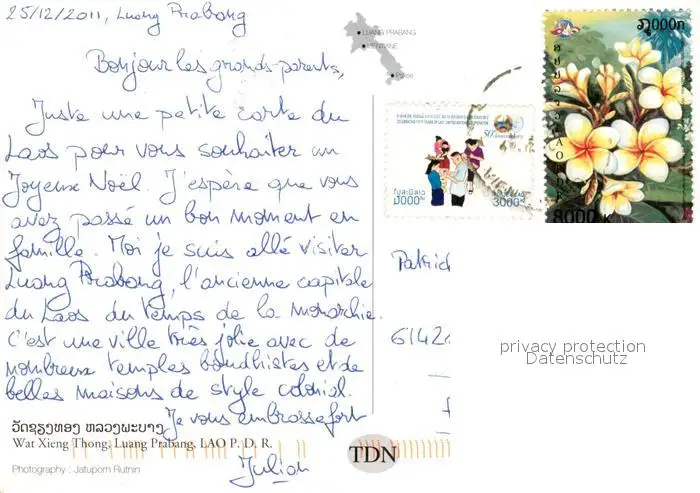 25/12/2011, Luang Prabang
Bonjour les grands-parents,
Juste une petite carte du
Laos pour vous souhaiter un
Joyeux Noël. J'espère que vous
avez passé un bon moment en
famille. Moi je suis allé visiter
Luang Prabang, l'ancienne capitale
du Laos du temps de la monarchie.
C'est une ville très jolie avec de
nombreux temples boudhistes et de
belles maisons de style colonial.
Je vous embrasse fort
Julian
ວັດຊຽງທອງ ຫລວງພະບາງ
Wat Xieng Thong, Luang Prabang, LAO P. D. R.
Photography : Jatuporn Rutnin
TDN
LUANG PRABANG
VIENTIANE
Pakse
50 Anniversary
3000
ພູ໐໐໐ກ
8000 K
Patric
6142
privacy protection
Datenschutz